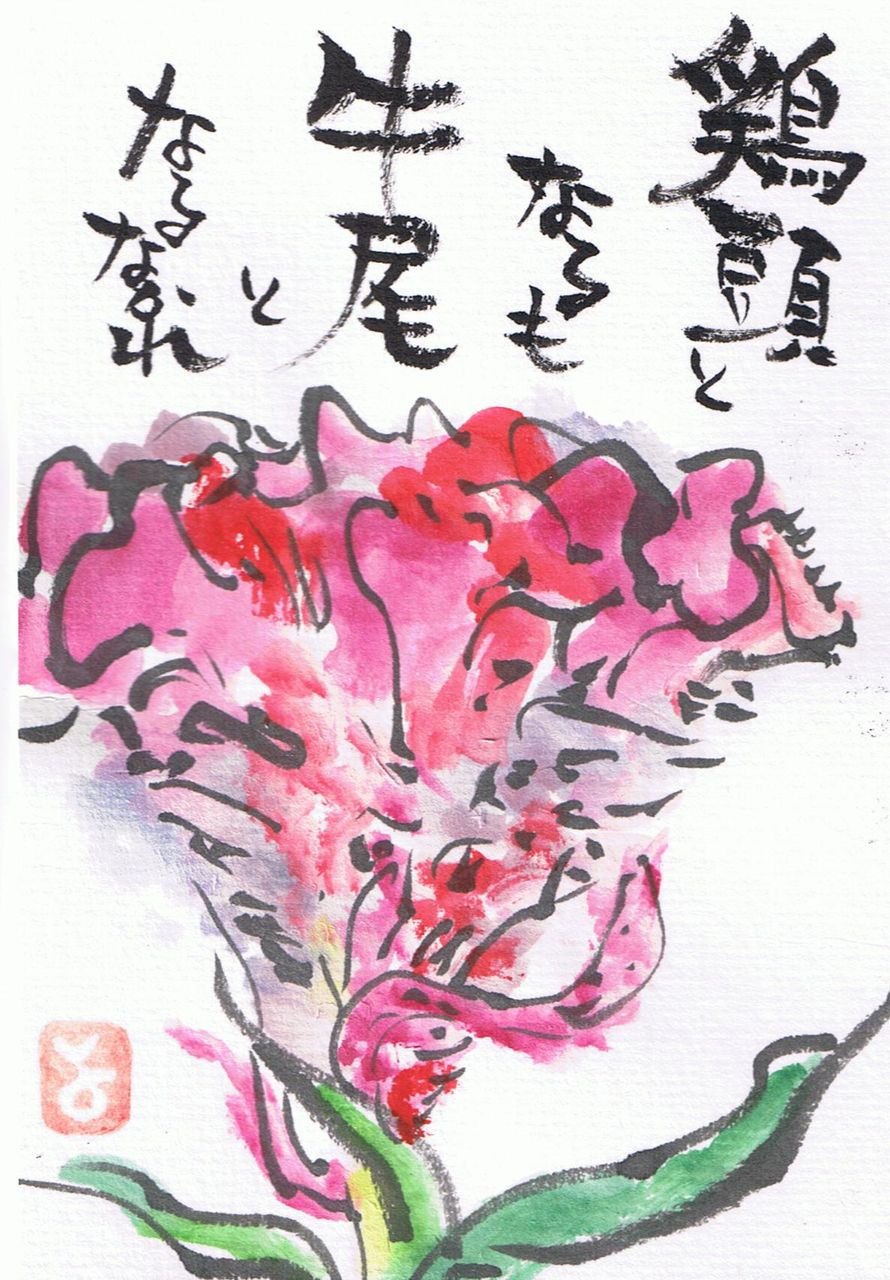 鶏頭と
なるも
牛尾
と
なるなかれ